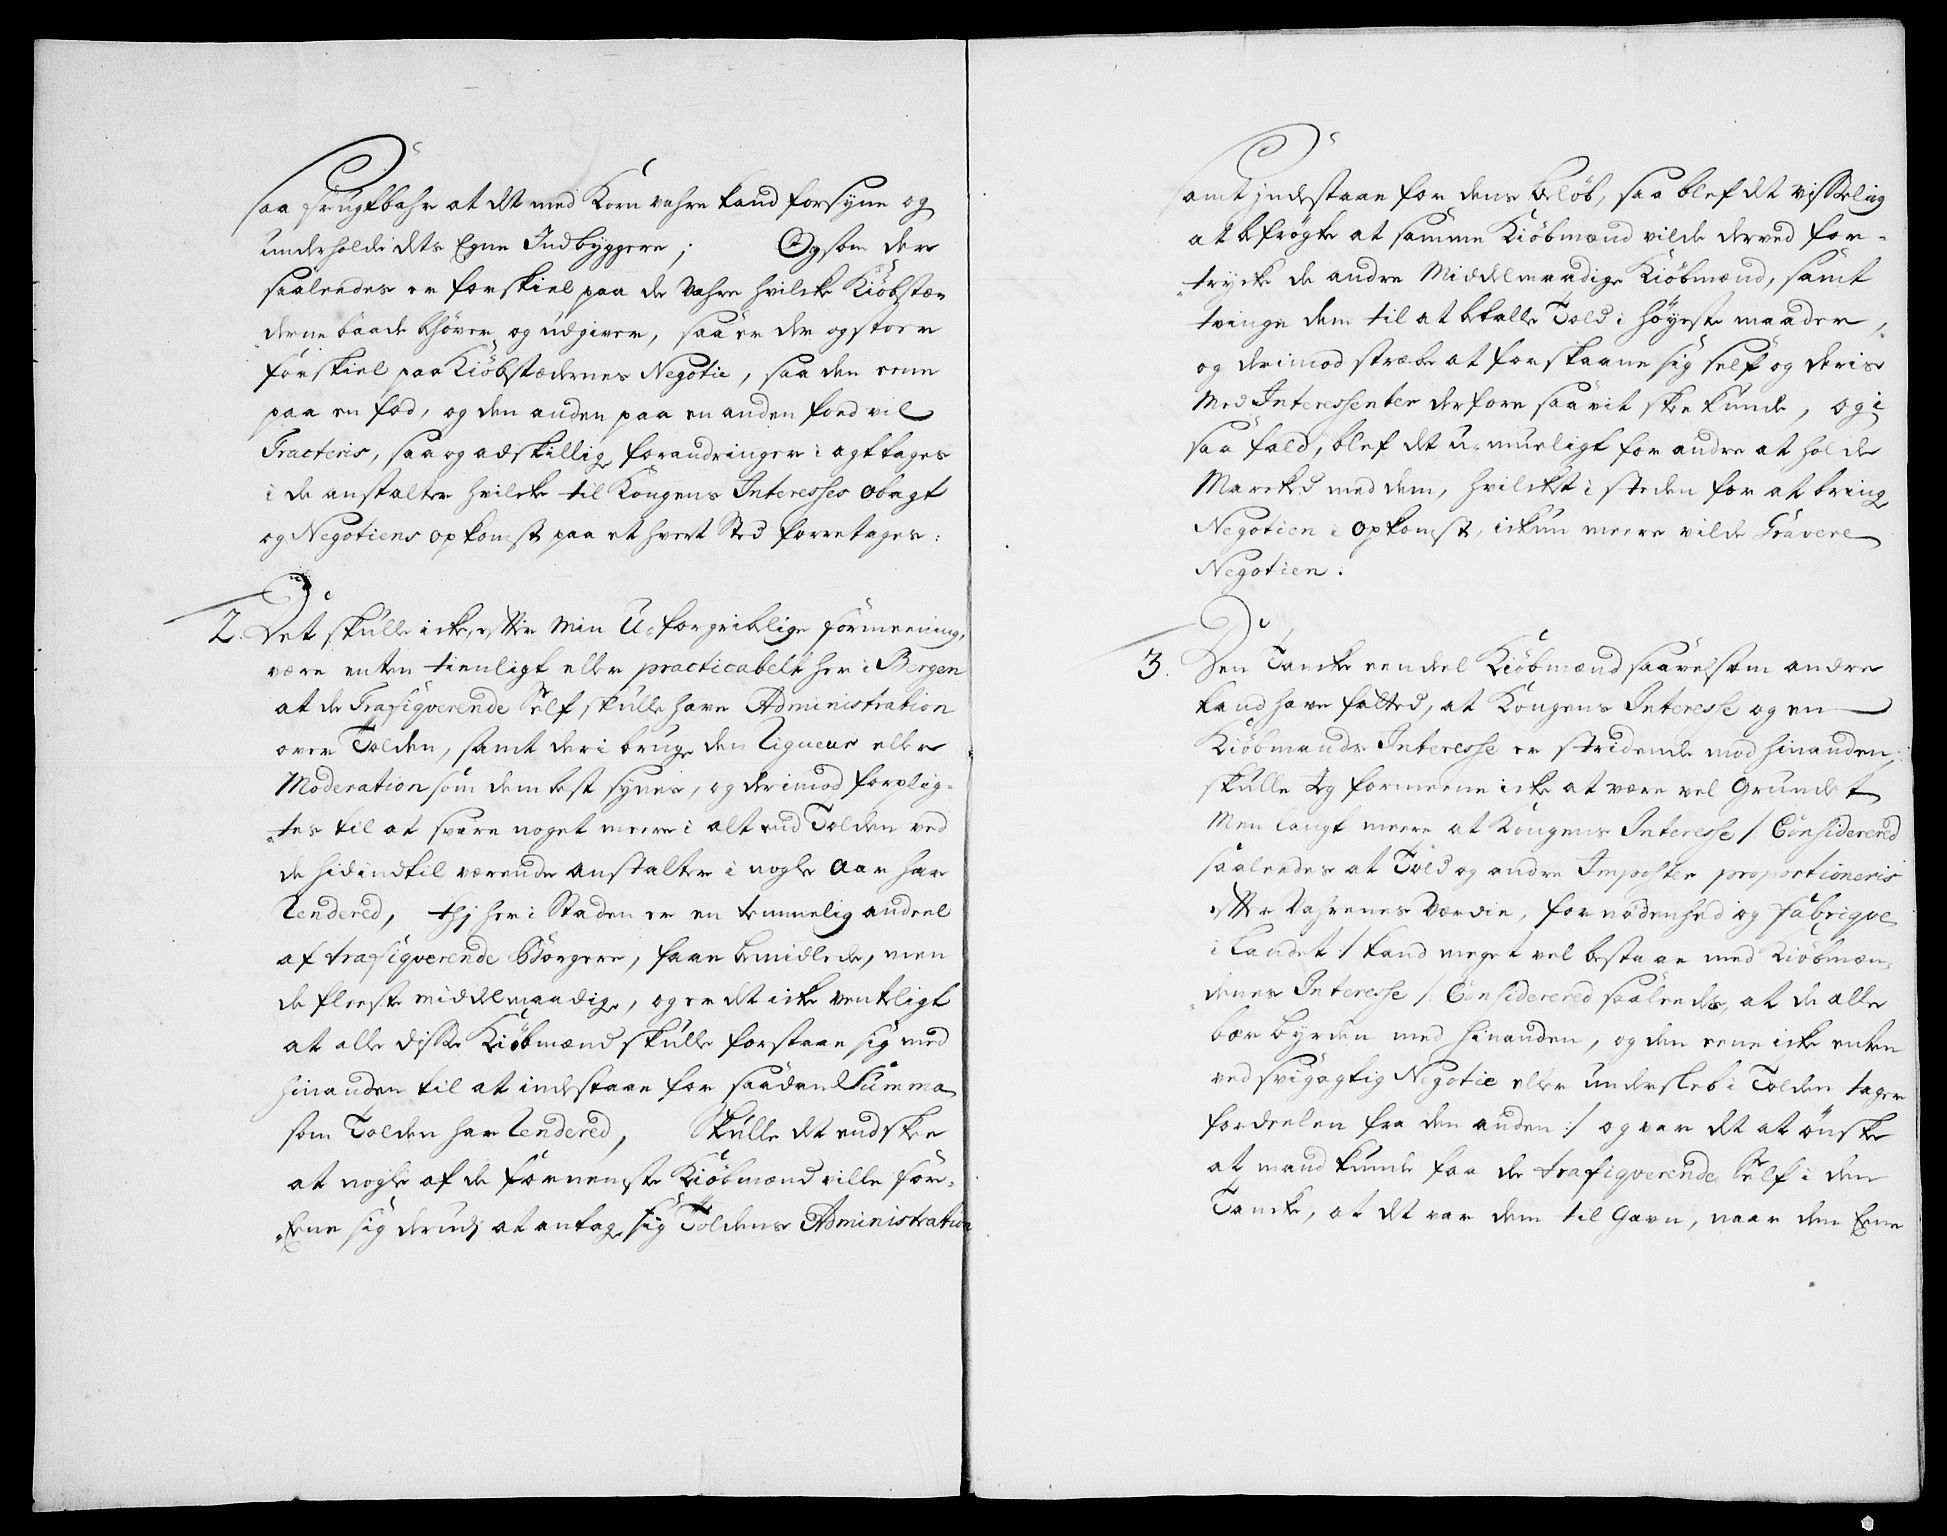 saa frugtbahr at det med Korn vahre kand forsyne og
underholde dets Egne Indbyggere; Og som der
saaledes er forskiel paa de Vahre hvilcke Kiöbstæ-
derne baade behöver og udgiver, saa er der og stoer
forskiel paa Kiöbstædernes Negotie, saa den eene
paa en fod, og den anden paa en anden foed vil
Tracteris, saa og adskillige forandringer i agttages
i de anstalter hvilcke til Kongens Interesses obagt
og Negotiens opkomst paa et hvert Sted forretages:
2. Det skulle icke, efter min U-forgribelige formeening,
være enten tienligt eller practicabelt her i Bergen
at de Trafiqverende Self skulle have Administration
over Tolden, samt deri bruge den Rigueur eller
Moderation som dem best synes, og derimod forplig-
tes til at svare noget meere i alt end Tolden ved
de hidindtil værende anstalter i nogle Aar har
Rendered, thj her i Staden er en temmelig andeel
af trafiqverende Borgere, faae bemidlede, men
de fleeste middelmaadige, og er det icke venteligt
at alle disse Kiöbmænd skulle forstaae sig med
hinanden til at indestaae for saadan Summa
som Tolden har Rendered, Skulle det end skee
at nogle af de fornemste Kiöbmænd ville for-
Eene sig derud at antage sig Toldens Administration
samt jndestaae for dens beløb, saa blef det visselig
at befrögte at samme Kiöbmænd vilde derved for-
trycke de andre Middelmaadige Kiöbmænd, samt
tvinge dem til at betalle Told i höyeste maader,
og derimod stræbe at forskaane sig self og deris
Med Interessenter derfore saavit skee kunde, og i
saa fald, blef det u-mueligt for andre at holde
Marcked med dem, hvilcket i steden for at bringe
Negotien i opkomst, ickun meere vilde Gravere
Negotien.
3. Den Tancke eendeel Kiöbmænd saavelsom andre
kand have fatted, at Kongens Interesse og en
Kiöbmands Interesse er stridende mod hinanden,
skulle Jeg formeene icke at være vel Grundet
Men langt meere at Kongens Interesse /: Considerered
saaledes at Told og andre Imposter proportioneris
efter Vahrenes Værdie, fornødenhed og fabrique
i Landet :/ kand meget vel bestaae med Kiöbmæn-
denes Interesse /: Considerered saaledes, at de alle
bær byrden med hinanden, og den eene icke enten
ved svigagtig Negotie eller undersleb i Tolden tager
fordeelen fra den anden :/ og var det at önske
at mand kunde faa de trafiqverende Self i den
Tancke, at det var dem til Gavn, naar den Eene